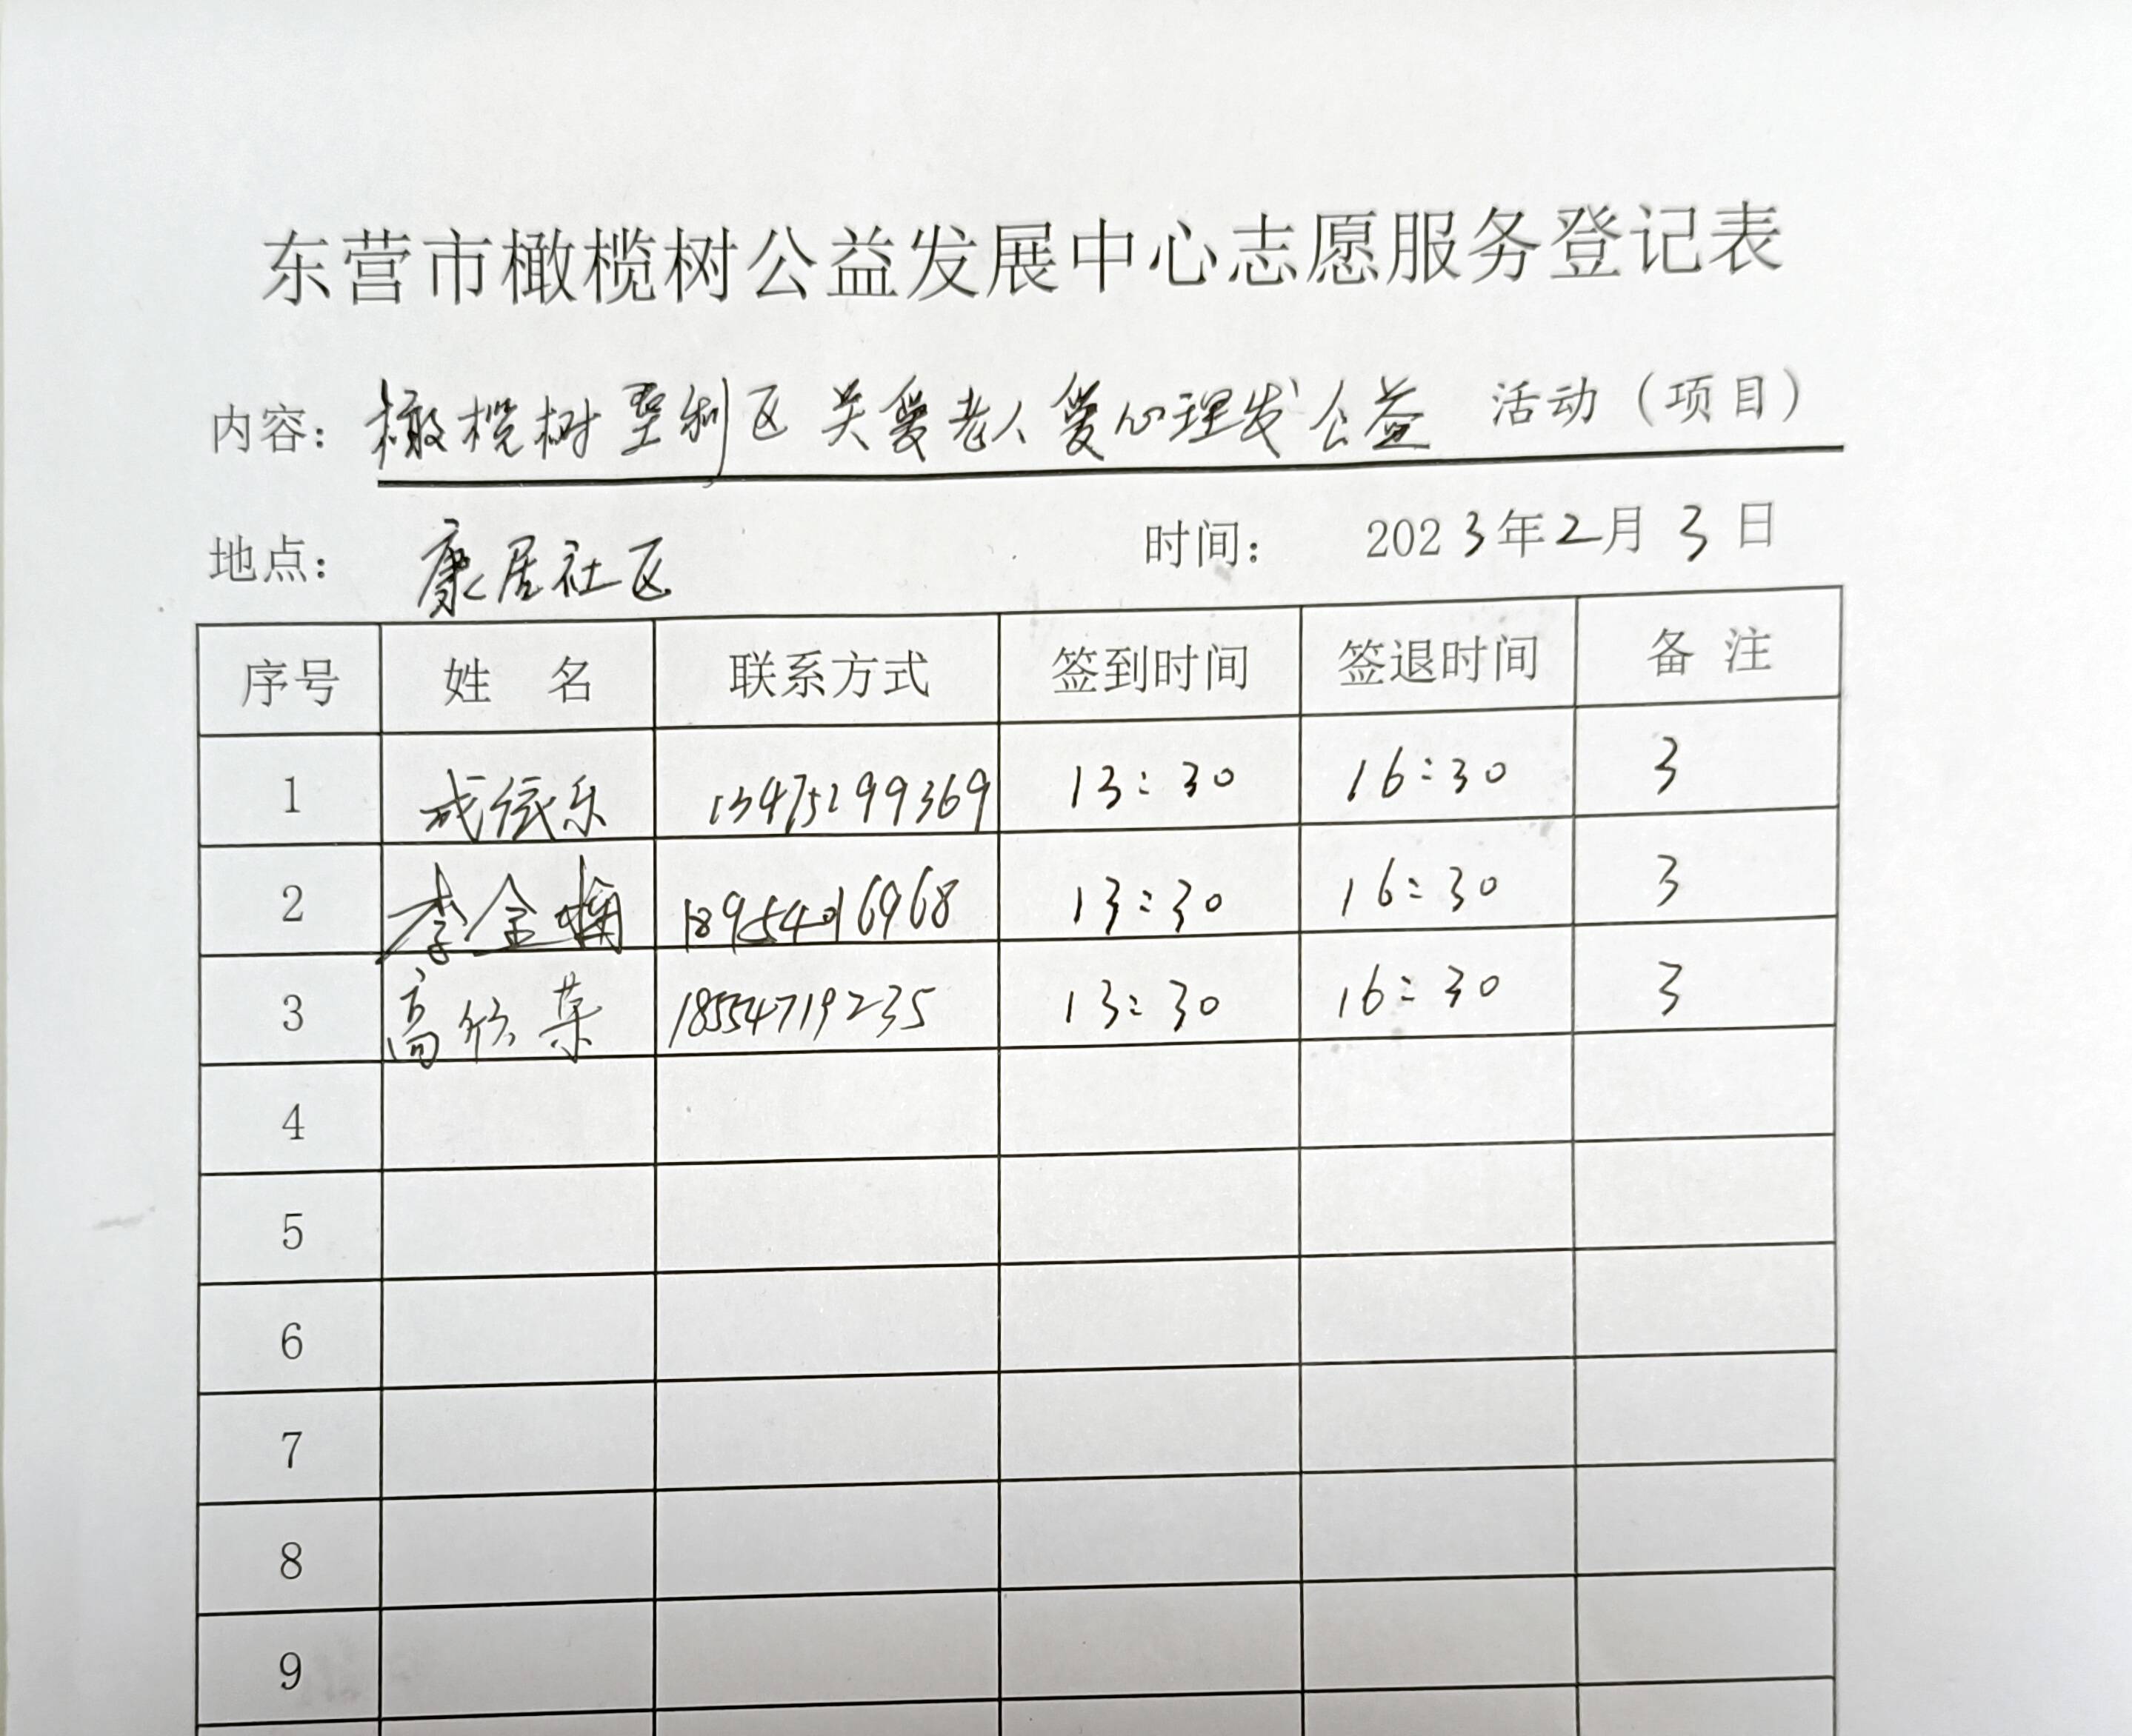 东营市橄榄树公益发展中心志愿服务登记表
内容：橄榄树垦利区关爱老人爱心理发公益 活动（项目）
地点： 康居社区 时间： 2023年2月3日
序号 姓 名 联系方式 签到时间 签退时间 备 注
1 成依乐 13475299369 13:30 16:30 3
2 李金梅 18954016968 13:30 16:30 3
3 高欣荣 18554719235 13:30 16:30 3
4
5
6
7
8
9